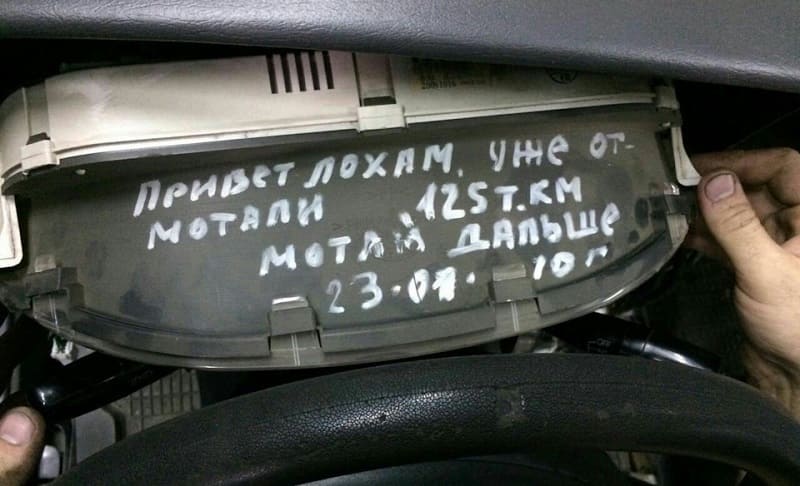 ПРИВЕТ ЛОХАМ. УЖЕ ОТ-
МОТАЛИ 125 Т.КМ
МОТАЙ ДАЛЬШЕ
23.01. 10 г